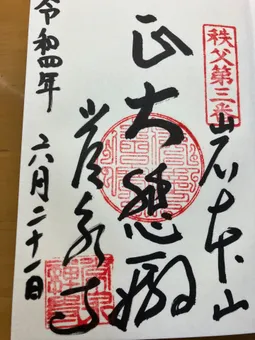 秩父第三番
岩本山
正大悲殿
常泉寺
令和四年
六月二十一日